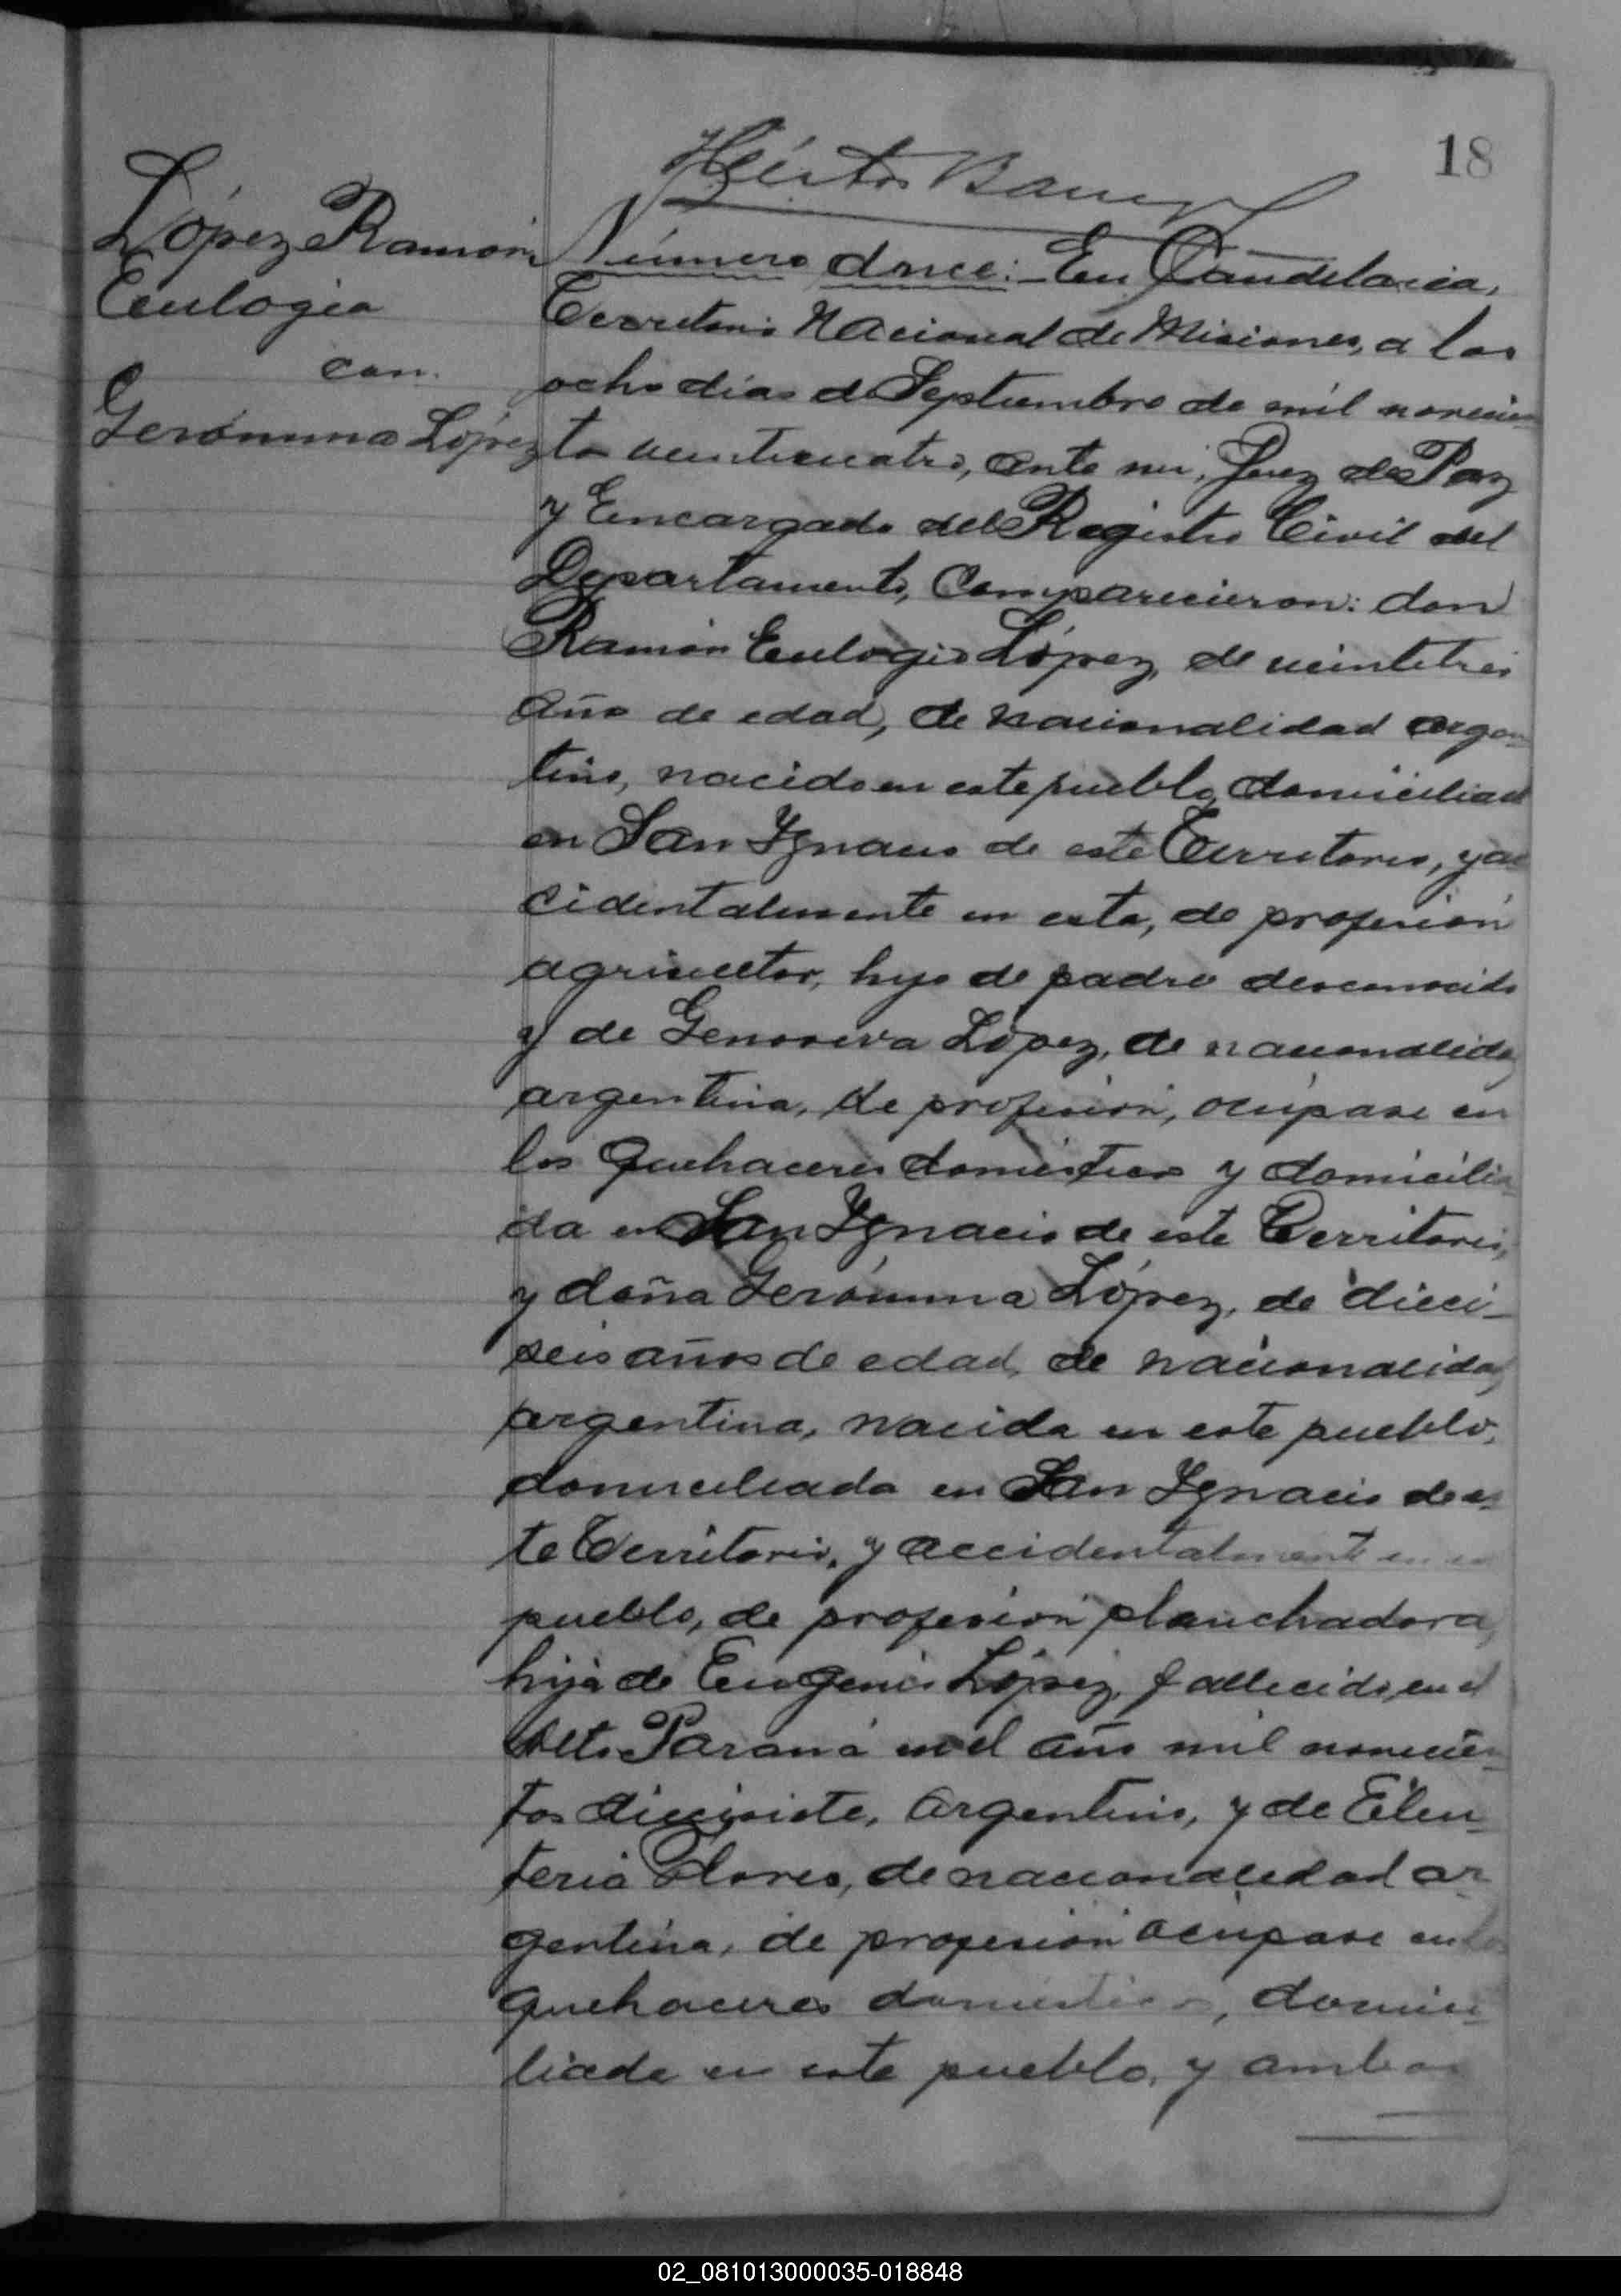 18
López Ramón
Eulogio
con
Gerónima López
Héctor
Número doce:- En Candelaria,
Territorio Nacional de Misiones, a los
ocho días de Septiembre de mil novecien
to veinticuatro, ante mi, Juez de Paz
y Encargado del Registro Civil del
Departamento, Comparecieron: don
Ramón Eulogio López, de veintitres
año de edad, de nacionalidad argen
tino, nacido en este pueblo, domiciliado
en San Ygnacio de este Territorio, y ac
cidentalmente en esta, de profesión
agricultor, hijo de padre desconocido
y de Genoveva López, de nacionalidad
argentina, de profesión, ocúpase en
los quehaceres domésticos y domicilia
da en San Ygnacio de este Territorio,
y doña Gerónima López, de dieci-
seis años de edad, de nacionalidad
argentina, nacida en este pueblo,
domiciliada en San Ygnacio de es-
te Territorio, y accidentalmente en
pueblo, de profesión planchadora,
hija de Eugenio López, fallecido, en el
Alto Paraná en el año mil novecien-
tos diecisiete, argentino, y de Eleu-
teria Flores, de nacionalidad ar-
gentina, de profesión ocúpase en los
quehaceres domésticos, domici-
liada en este pueblo, y ambos
02_081013000035-018848